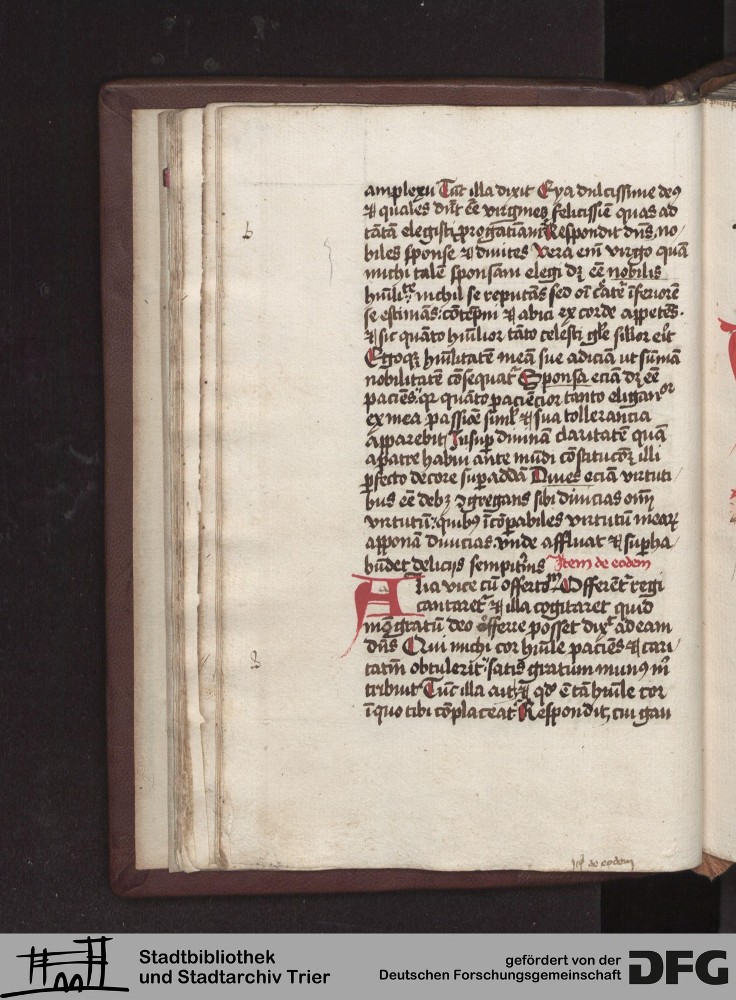 amplexu Tūc illa dixit Eya dulcissime deꝰ
⁊ quales dn̄t ēē virgines felicissīē quas ad
tātā elegisti progatiam Respondit dn̄s no/
biles sponse ⁊ diuites Vera em̄ virgo quā
michi talē sponsam elegi dꝫ ēē nobilis
nichil se reputās sed oī īferiorē
se estimās: cōtēpni ⁊ abici ex corde appetēs.
⁊ sic quāto hūilior tāto celesti gl̄e erit
Egoqꝫ hūilitatē meā sue adiciā ut sūmā
nobilitatē cōsequat̄ Sponsa eciā dꝫ ēē
paciēs: qꝛ quāto paciēcior tanto
ex mea passiōe ⁊ sua tollerancia
apparebit Insup diuinā claritatē quā
a patre habui ante mūdi cōstitucōꝫ illi
ꝑfecto decore supaddā Diues eciā virtuti/
bus ēē debꝫ ꝯgregans sibi diuicias om̄
virtutū: quibꝰ īcōꝑabiles virtutū mearꝝ
apponā diuicias. vnde affluat ⁊ supha/
būdet delicijs sempit̄nis Item de eodem
Alia vice cū Offerēt̄ regi
cantaret̄ ⁊ illa cogitaret quid
gratū deo offerre posset dixͭ ad eam
dn̄s Qui michi cor hūīle paciēs ⁊ cari/
tatiū obtulerit: satis gratum munꝰ m̄
tribuit Tūc illa ait: qd̄ ē tā hūile cor
ī quo tibi cōplaceat Respondit, cui gau
b
g
de eodem
Stadtbibliothek
und Stadtarchiv Trier
gefördert von der
Deutschen Forschungsgemeinschaft
DFG